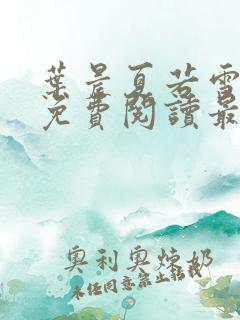 葉晨夏若雪
免費閱讀最
奧利奧炼奶
未经同意禁止转载